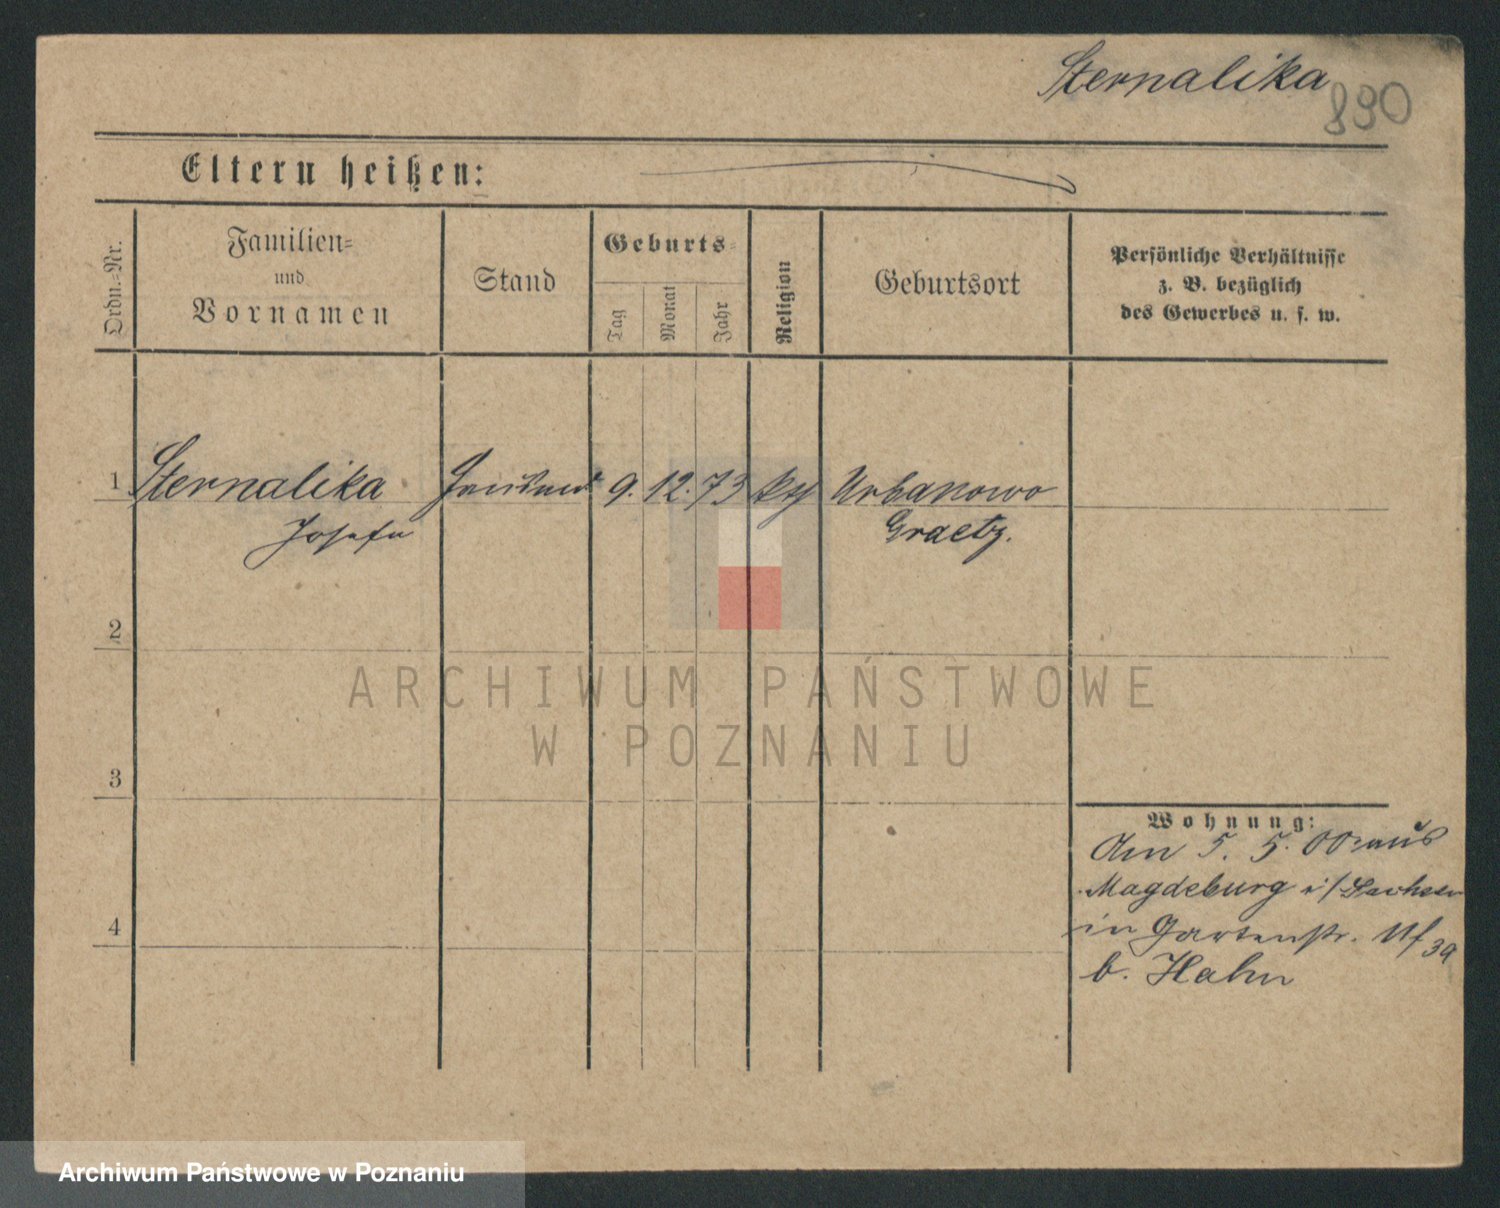 Sternalika
890
Eltern heißen:
Ordn.=Nr.
Familien=
und
Vornamen
Stand
Geburts=
Tag
Monat
Jahr
Religion
Geburtsort
Persönliche Verhältnisse
z. B. bezüglich
des Gewerbes u. s. w.
1 Sternalika 9. 12. 73 Urbanowo
Josefa Graetz.
2
ARCHIWUM PAŃSTWOWE
W POZNANIU
3
Wohnung:
Am 5. 5. 00 aus
Magdeburg i/Sachsen
4
in Gartenstr.
b. Hahn
Archiwum Państwowe w Poznaniu